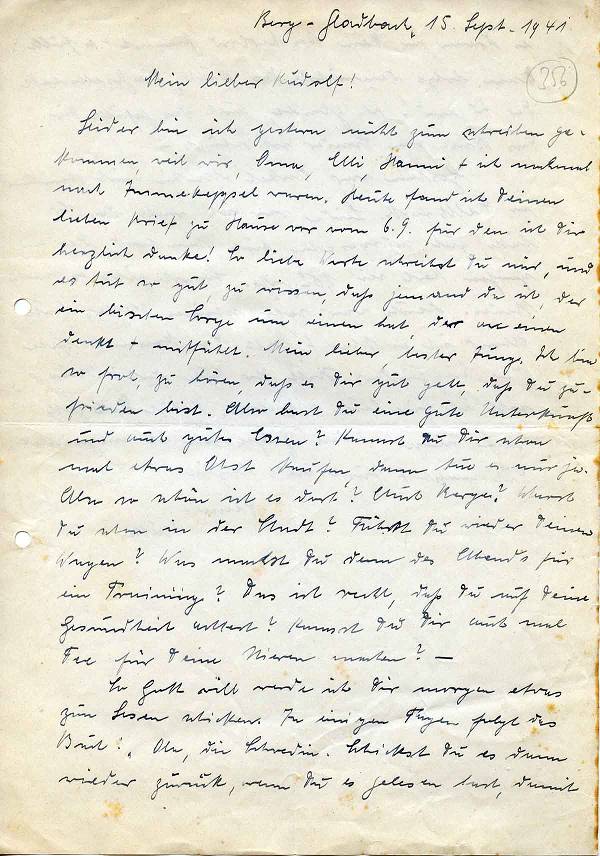 Berg-Gladbach, 15. Sept. 1941
356
Mein lieber Rudolf!
Leider bin ich gestern nicht zum schreiben ge-
kommen weil wir, Oma, Elli, Hanni + ich nochmal
nach Immekeppel waren. Heute fand ich Deinen
lieben Brief zu Hause vor vom 6.9. für den ich Dir
herzlich danke! So liebe Worte schreibst Du mir, und
es tut so gut zu wissen, daß jemand da ist, der
ein bischen Sorge um einen hat, der an einen
denkt + mitfühlt. Mein lieber, bester Jung. Ich bin
so froh, zu hören, daß es Dir gut geht, daß Du zu-
frieden bist. Also hast Du eine gute Unterkunft
und auch gutes Essen? Kannst Du Dir schon
mal etwas Obst kaufen, dann tue es nur ja.
Also so schön ist es dort? Auch Berge? Warst
Du schon in der Stadt? Fährst Du wieder Deinen
Wagen? Was machst Du denn des Abends für
ein Training? Das ist recht, daß Du auf Deine
Gesundheit achtest? Kannst Du Dir auch mal
Tee für Deine Nieren machen? —
So Gott will werde ich Dir morgen etwas
zum Lesen schicken. In einigen Tagen folgt das
Buch! die Schwedin. Schickst Du es dann
wieder zurück, wenn Du es gelesen hast, damit